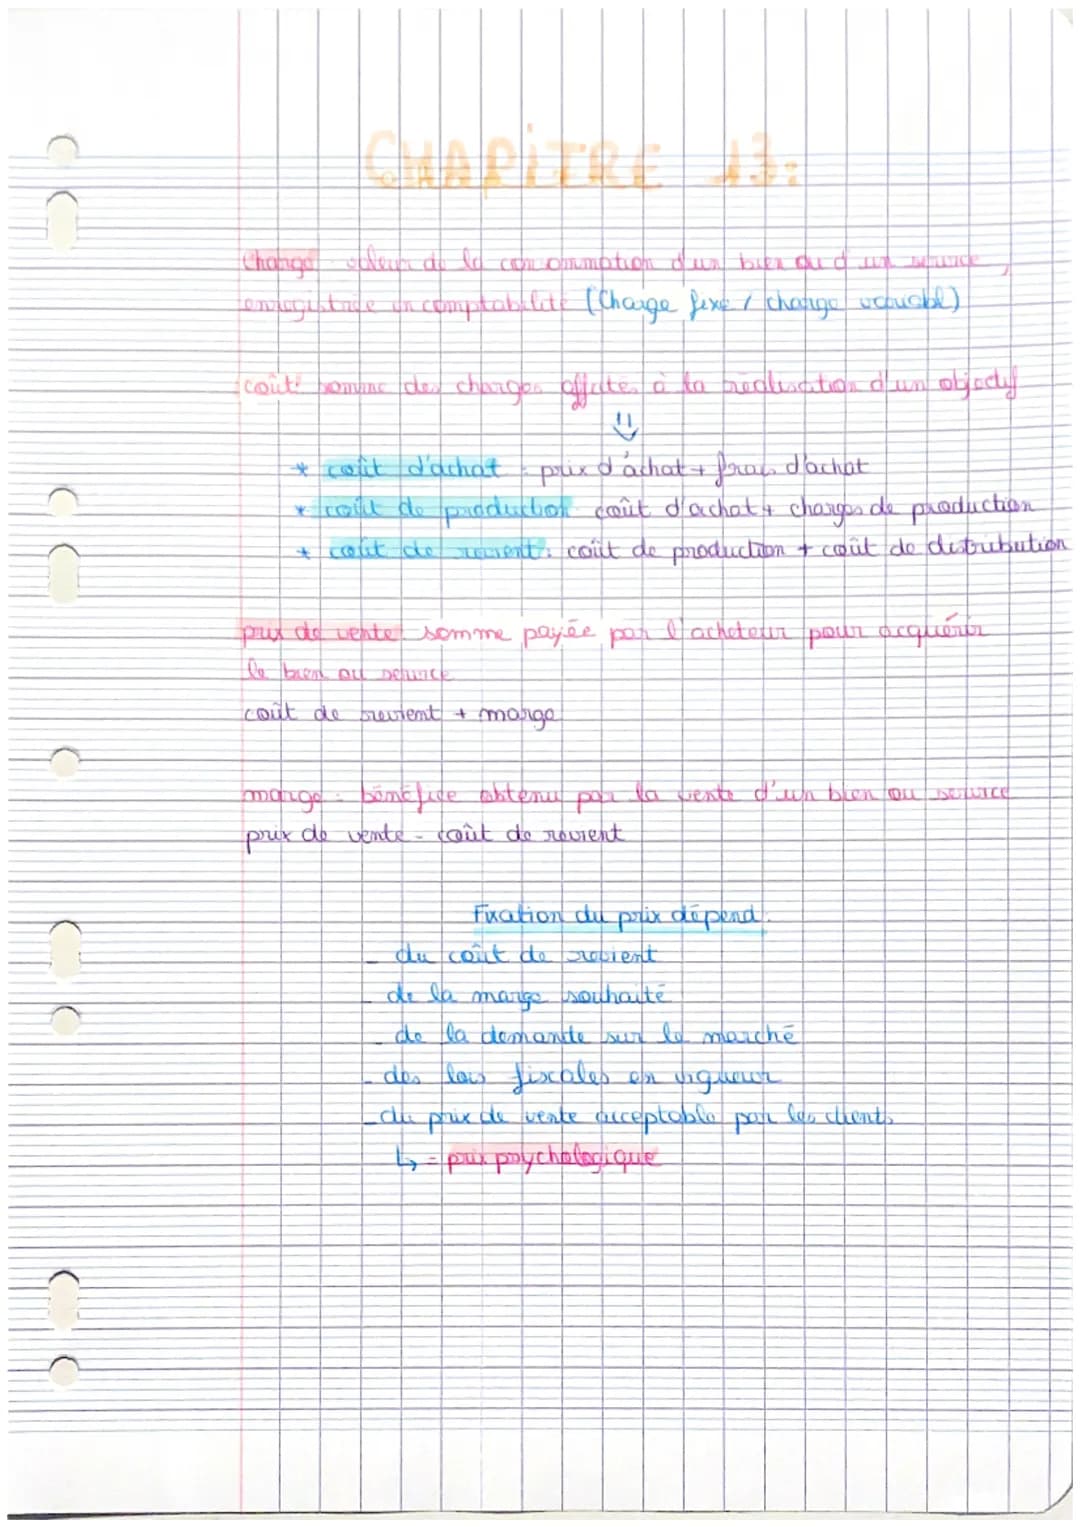 CHAPiTRE 13:
Charge : valeur de la consommation d'un bien ou d'un service,
enregistrée en comptabilité (Charge fixe / charge variable)
coût : somme des charges affectés à la réalisation d'un objectif
⇓
* coût d'achat : prix d'achat + frais d'achat
* coût de production : coût d'achat + charges de production
* coût de revient : coût de production + coût de distribution
prix de vente : somme payée par l'acheteur pour acquérir
le bien ou service
coût de revient + marge
marge : bénéfice obtenu par la vente d'un bien ou service
prix de vente - coût de revient
Fixation du prix dépend :
- du coût de revient
- de la marge souhaité
- de la demande sur le marché
- des lois fiscales en vigueur
- du prix de vente acceptable par les clients
↳ = prix psychologique